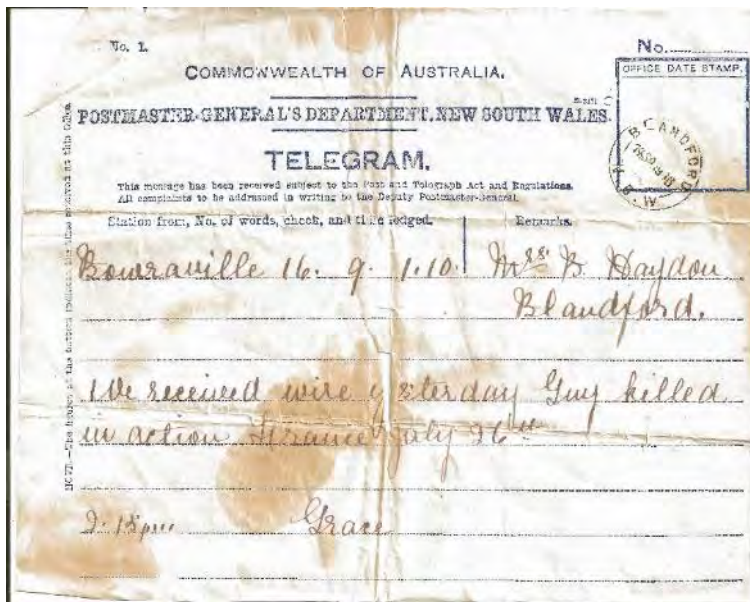 No. 1.
No.
COMMONWEALTH OF AUSTRALIA.
OFFICE DATE STAMP.
POSTMASTER-GENERAL'S DEPARTMENT, NEW SOUTH WALES.
TELEGRAM.
BLANDFORD
N.S.W
This message has been received subject to the Post and Telegraph Act and Regulations.
All complaints to be addressed in writing to the Deputy Postmaster-General.
Station from, No. of words, check, and time lodged.
Remarks.
Bowraville 16. 9. 1.10.
Mrs. B Haydon
Blandford.
We received wire yesterday Guy killed
in action France July 26th
2.15pm
Grace
NOTE.—The figures at the